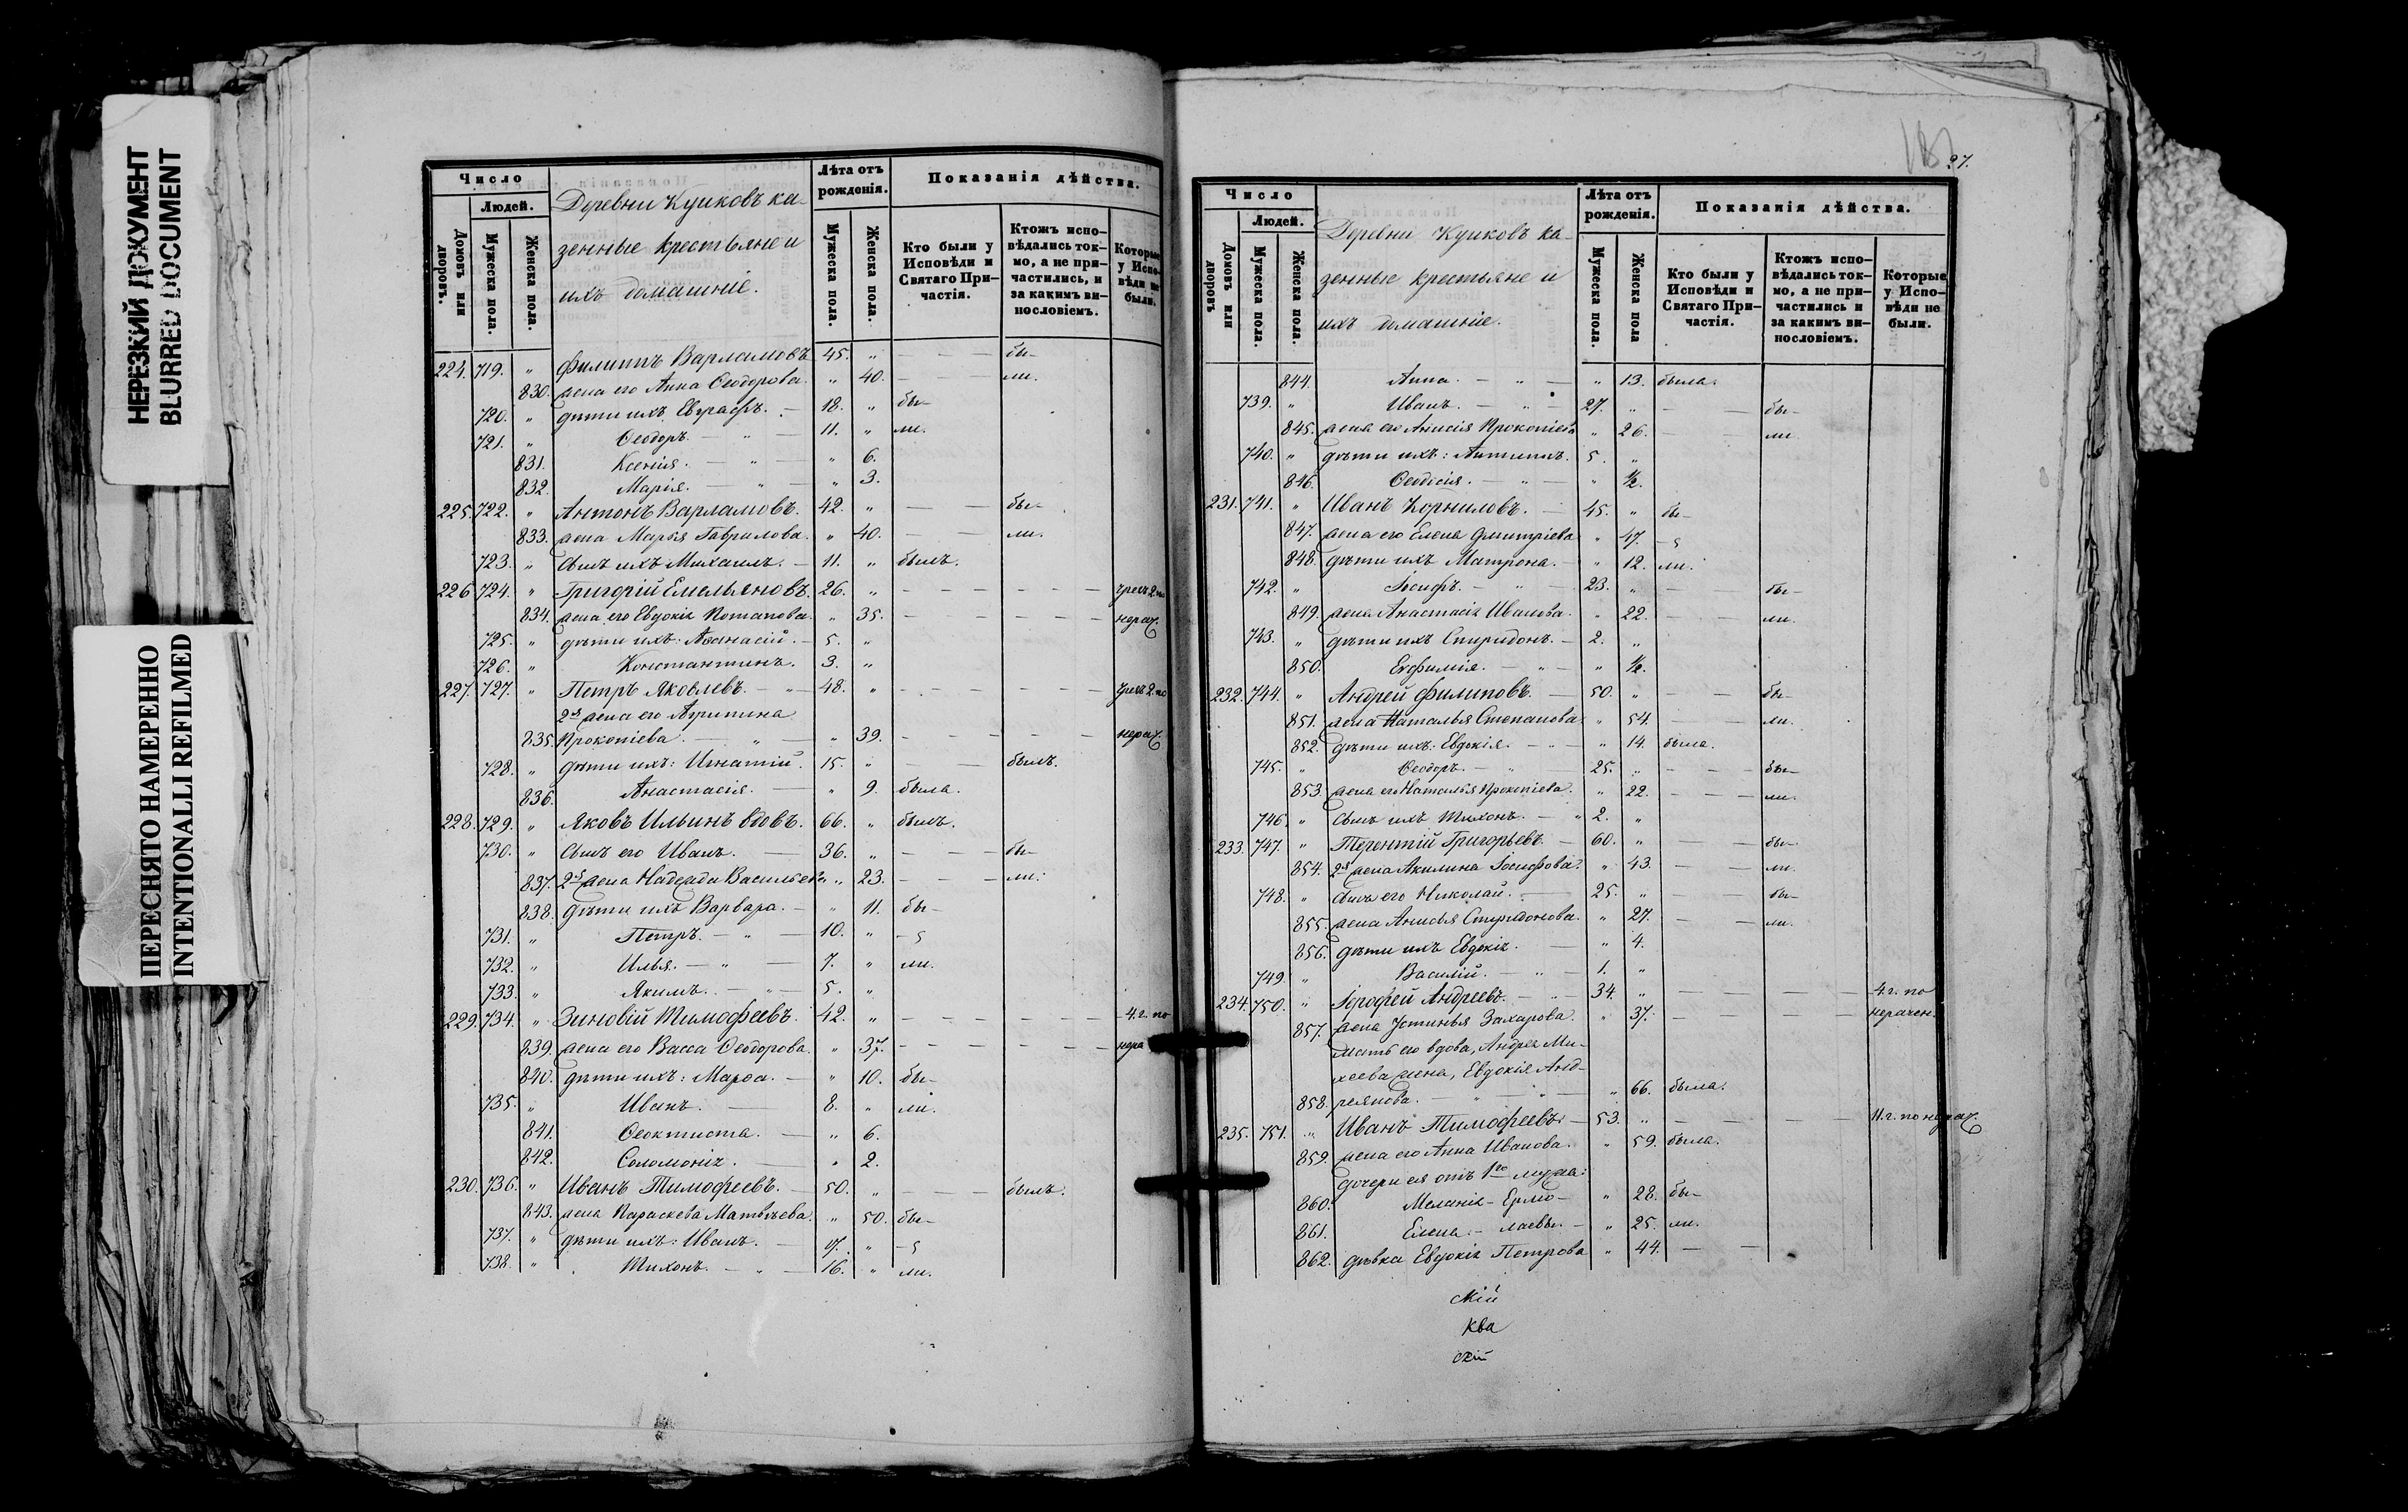 НЕРЕЗКИЙ ДОКУМЕНТ
BLURRED DOCUMENT
ПЕРЕСНЯТО НАМЕРЕННО
INTENTIONALLI REFILMED
Число
Людей.
Домовъ или дворовъ.
Мужеска пола.
Женска пола.
Деревни Кушковъ ка-
зенные крестьяне и
ихъ домашніе.
Лѣта отъ рожденія.
Мужеска пола.
Женска пола.
Показанія дѣйства.
Кто были у Исповѣди и Святаго При-частія.
Ктожъ испо-вѣдались ток-мо, а не при-частились, и за какимъ ви-нословіемъ.
Которые у Испо-вѣди не были.
224. 719. " Филиппъ Варламовъ 45. " — — бы-
830. жена его Анна Ѳеодорова. " 40. — — ли.
720. " дѣти ихъ Евграфъ. — 18. " бы-
721. " Ѳеодоръ. — " — 11. " ли.
831. Ксенія. — " — " 6.
832. Марія. — " — " 3.
225. 722. " Антонъ Варламовъ. 42. " — — бы-
833. жена Марья Гаврилова. " 40. — — ли.
723. " сынъ ихъ Михаилъ. — 11. " былъ.
226 724. " Григорій Емельяновъ. 26. " — — — — — чрезъ 2. по
834. жена его Евдокія Потапова. " 35. — — — — — нерач.
725. " дѣти ихъ: Аѳанасій. — 5. "
726. " Константинъ. 3. "
227. 727. " Петръ Яковлевъ. — " — 48. " — — — — — чрезъ 2. по
2я жена его Агрипина
835. Прокопіева. — " — " 39. — — — — — нерач.
728. " дѣти ихъ: Игнатій. 15. " — — былъ.
836. Анастасія. — " 9. была.
228. 729. " Яковъ Ильинъ вдовъ. 66. " былъ.
730. " сынъ его Иванъ. — 36. " — — — бы-
837. 2я жена Надежда Васильева " 23. — — — ли.
838. дѣти ихъ Варвара. — " 11. бы-
731. " Петръ. — " — 10. "
732. " Илья. — " — 7. " ли.
733. " Якимъ. — " — 5. "
229. 734. " Зиновій Тимофеевъ. 42. " — — — — — 4. г. по
839. жена его Васса Ѳеодорова. " 37. — — — — — нера
840. дѣти ихъ: Марѳа. — " 10. бы-
735. " Иванъ. — 8. " ли.
841. Ѳеоктиста. — " 6.
842. Соломонія. — " 2.
230. 736. " Иванъ Тимофеевъ. — 50. " — — — былъ.
843. жена Параскева Матвѣева. " 50. бы-
737. " дѣти ихъ: Иванъ. —
738. " Тихонъ. — " — 16. " ли.
27.
Число
Людей.
Домовъ или дворовъ
Мужеска пола.
Женска пола.
Деревни Кушковъ ка-
зенные крестьяне и
ихъ домашніе.
Лѣта отъ рожденія.
Мужеска пола.
Женска пола
Показанія дѣйства.
Кто были у Исповѣди и Святаго При-частія.
Ктожъ испо-вѣдались ток-мо, а не при-частились и за какимъ ви-нословіемъ.
Которые у Испо-вѣди не были.
844. Анна. — " — " 13. была.
739. " Иванъ. — " — 27. " — — бы-
845. жена его Анисія Прокопіева " 26. — — ли
740. " дѣти ихъ: Антипъ. 5. "
846. Ѳеодосія. — " — " ½.
231. 741. " Иванъ Корниловъ. — 45. " бы-
847. жена его Елена Дмитріева " 47.
848. дѣти ихъ Матрона. — " 12. ли.
742. " Іосифъ. — " — 23. " — — бы-
849. жена Анастасія Иванова. " 22. — — ли.
743. " дѣти ихъ Спиридонъ. — 2. "
850. Евфимія. — " — " ½.
232. 744. " Андрей Филиповъ. — 50. " — — бы-
851. жена Наталья Степанова. " 54. — — ли.
852. дѣти ихъ: Евдокія. — " — " 14. была.
745. " Ѳеодоръ. — " 25. " — — — бы-
853. жена его Наталья Прокопіева. " 22. — — — ли.
746. " сынъ ихъ Тихонъ. — " 2. "
233. 747. " Терентій Григорьевъ. — 60. " — — бы-
854. 2я жена Акилина Іосифова. " 43. — — ли.
748. " сынъ его Николай. — 25. " — — бы-
855. жена Анисья Спиридонова. " 27. — — ли.
856. дѣти ихъ Евдокія. — " 4.
749. " Василій. — " — 1. "
234. 750. " Іерофей Андреевъ. — " — 34. " — — — — 4. г. по
857. жена Устинья Захарова. " 37. — — — — нерачен.
Мать его вдова, Андрея Ми-
хеева жена, Евдокія Анд-
858. реянова. — " — " — " 66. была.
235. 751. " Иванъ Тимофеевъ — 53. " — — — — 11. г. по нерач.
859. жена его Анна Иванова. " 59. была.
дочери ея отъ 1го мужа:
860. Меланія - Ермо- " 28. бы-
861. Елена. - лаевы. — " 25. ли.
862. дѣвка Евдокія Петрова " 44. — —
скій
ква
скій